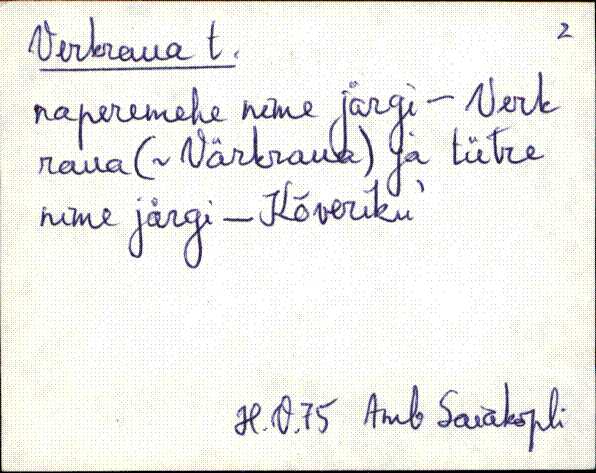 2
Verkraua t.
naperemehe nime järgi – Verk
raua (~ Värkraua) ja tütre
nime järgi – Kõveriku
H.V.75 Amb Saiakopli